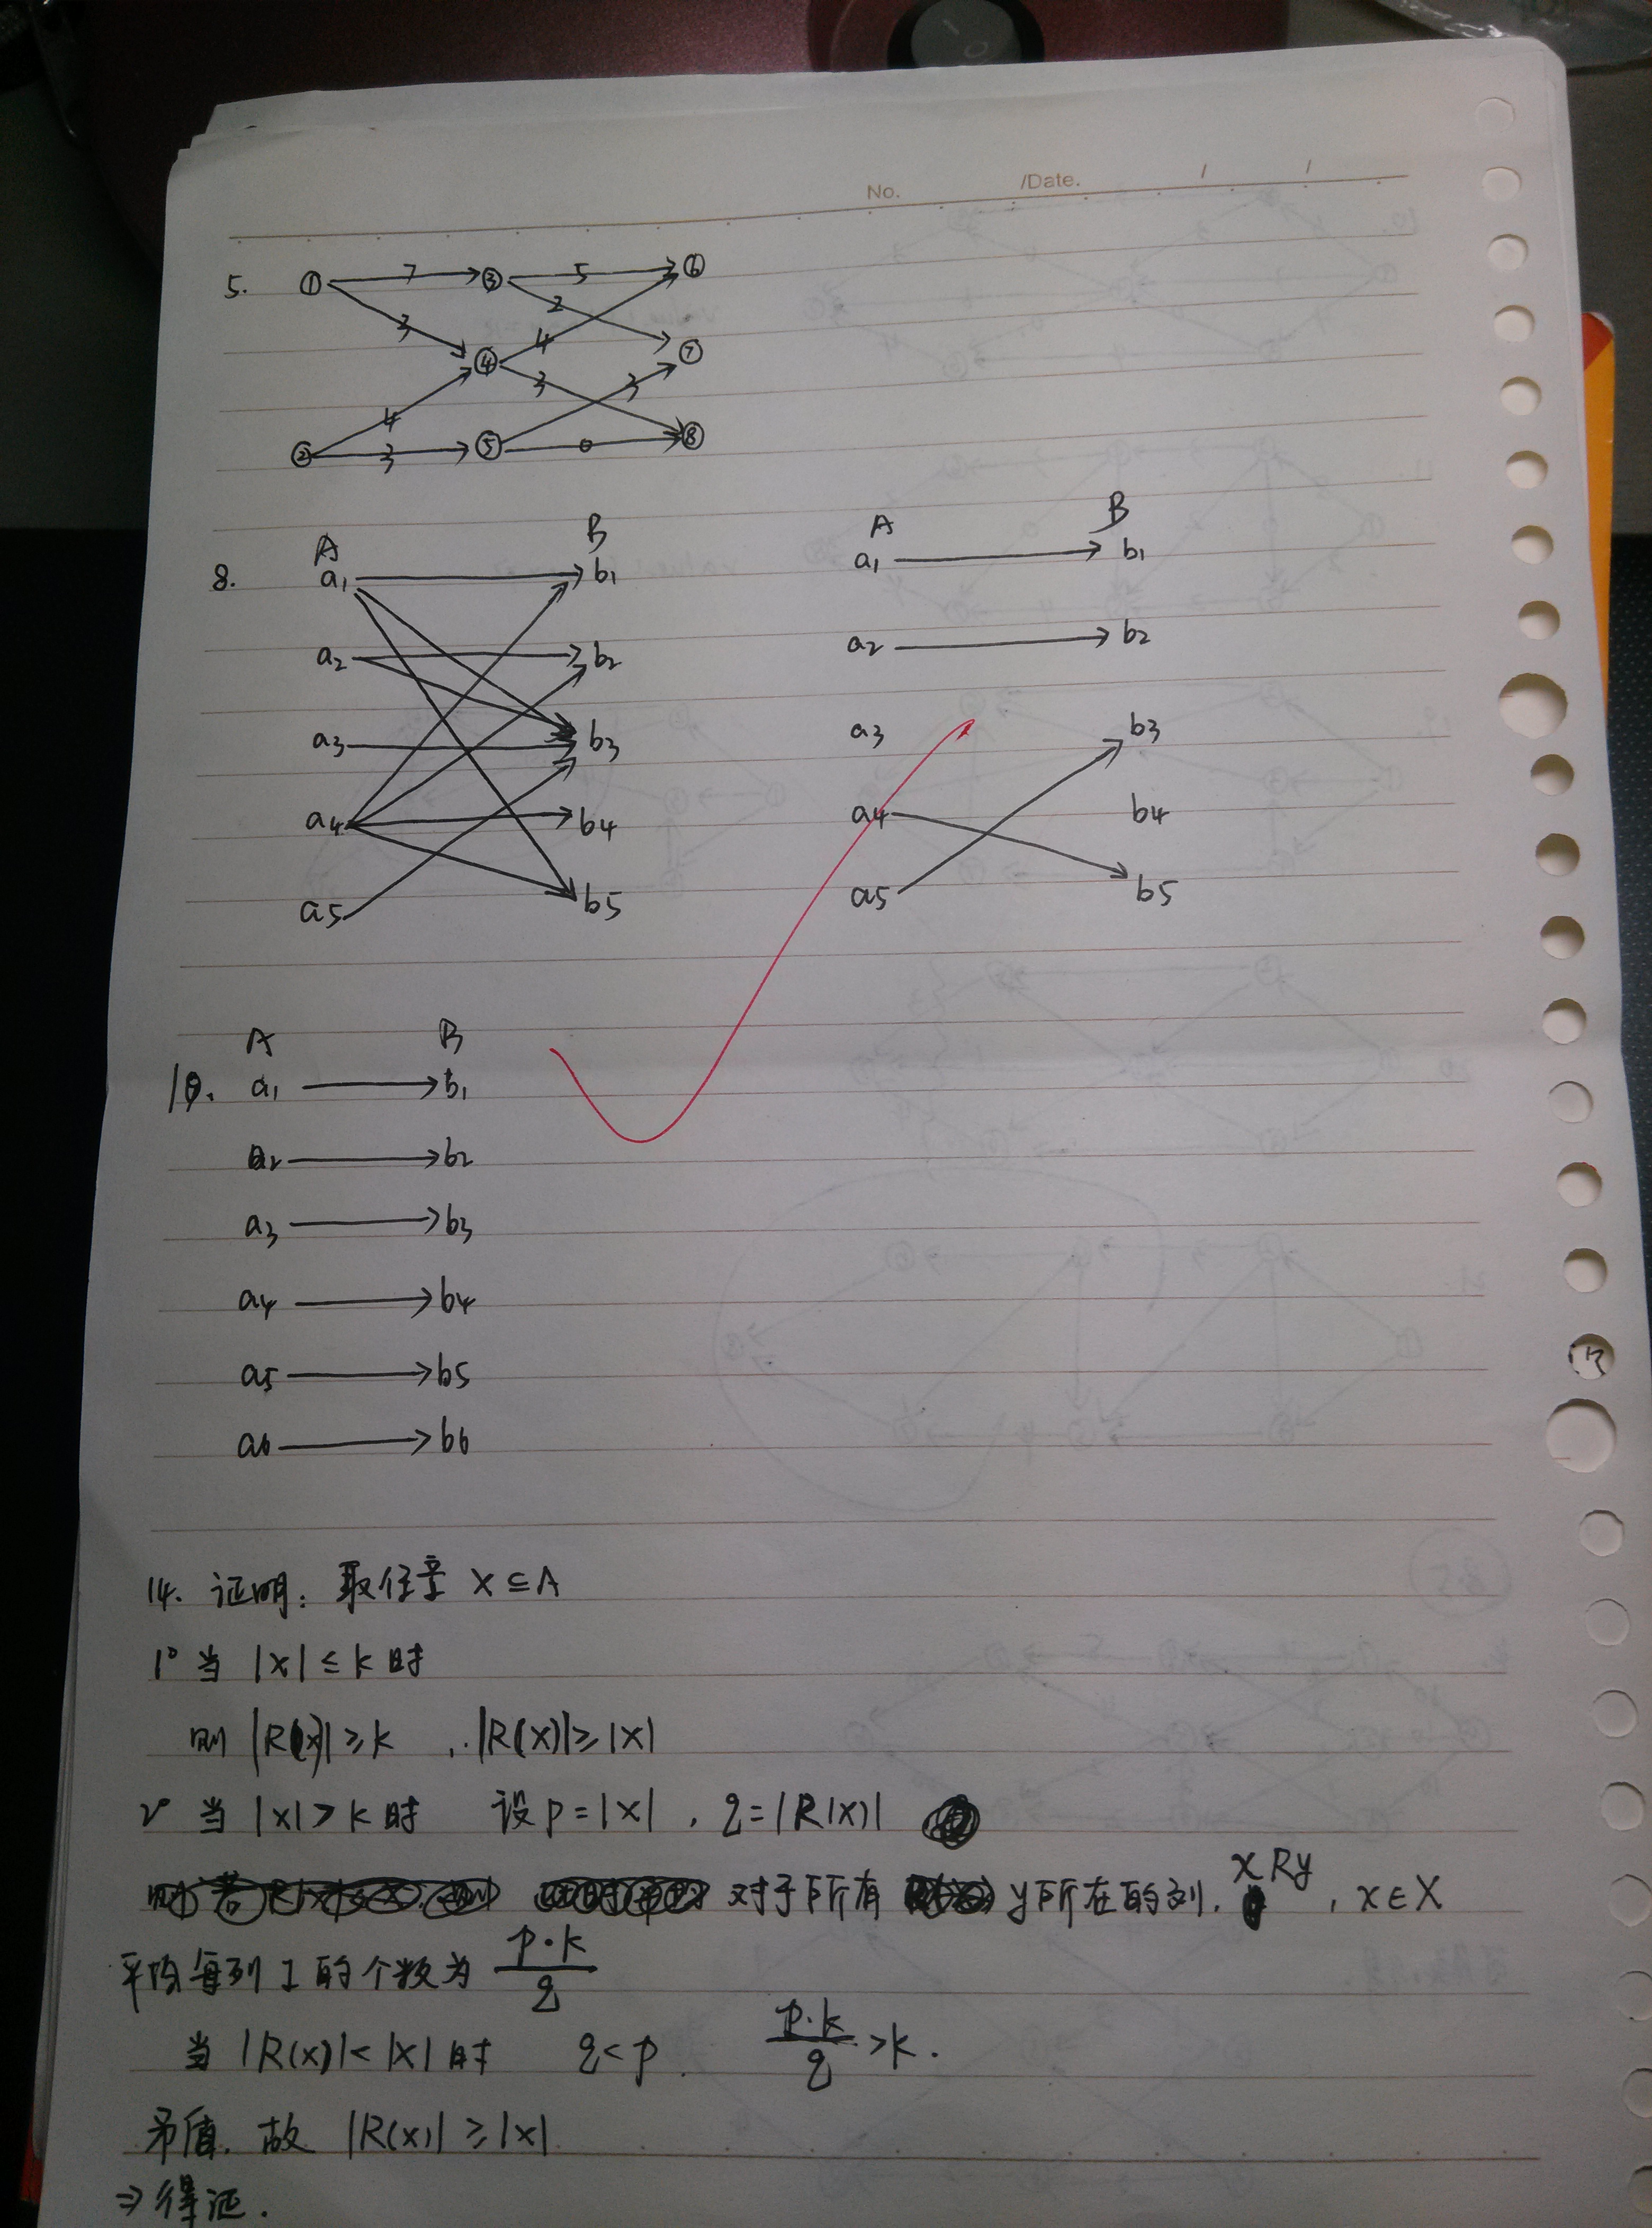 No. /Date. / /
5. ① 7 ③ 5 ⑥
3 2
④ 4 ⑦
4 3 3
② 3 ⑤ 0 ⑧
A B A B
8. a1 b1 a1 b1
a2 b2 a2 b2
a3 b3 a3 b3
a4 b4 a4 b4
a5 b5 a5 b5
A B
10. a1 b1
a2 b2
a3 b3
a4 b4
a5 b5
a6 b6
14. 证明: 取任意 X⊆A
1° 当 |X| ≤ k 时
则 |R(X)| ≥ k ∴ |R(X)| ≥ |X|
2° 当 |X| > k 时 设 p = |X| , q = |R(X)|
对于所有 y所在的列, xRy , x∈X
平均每列1的个数为 p·k/q
当 |R(X)| < |X| 时 q < p p·k/q > k.
矛盾, 故 |R(X)| ≥ |X|
⇒ 得证.